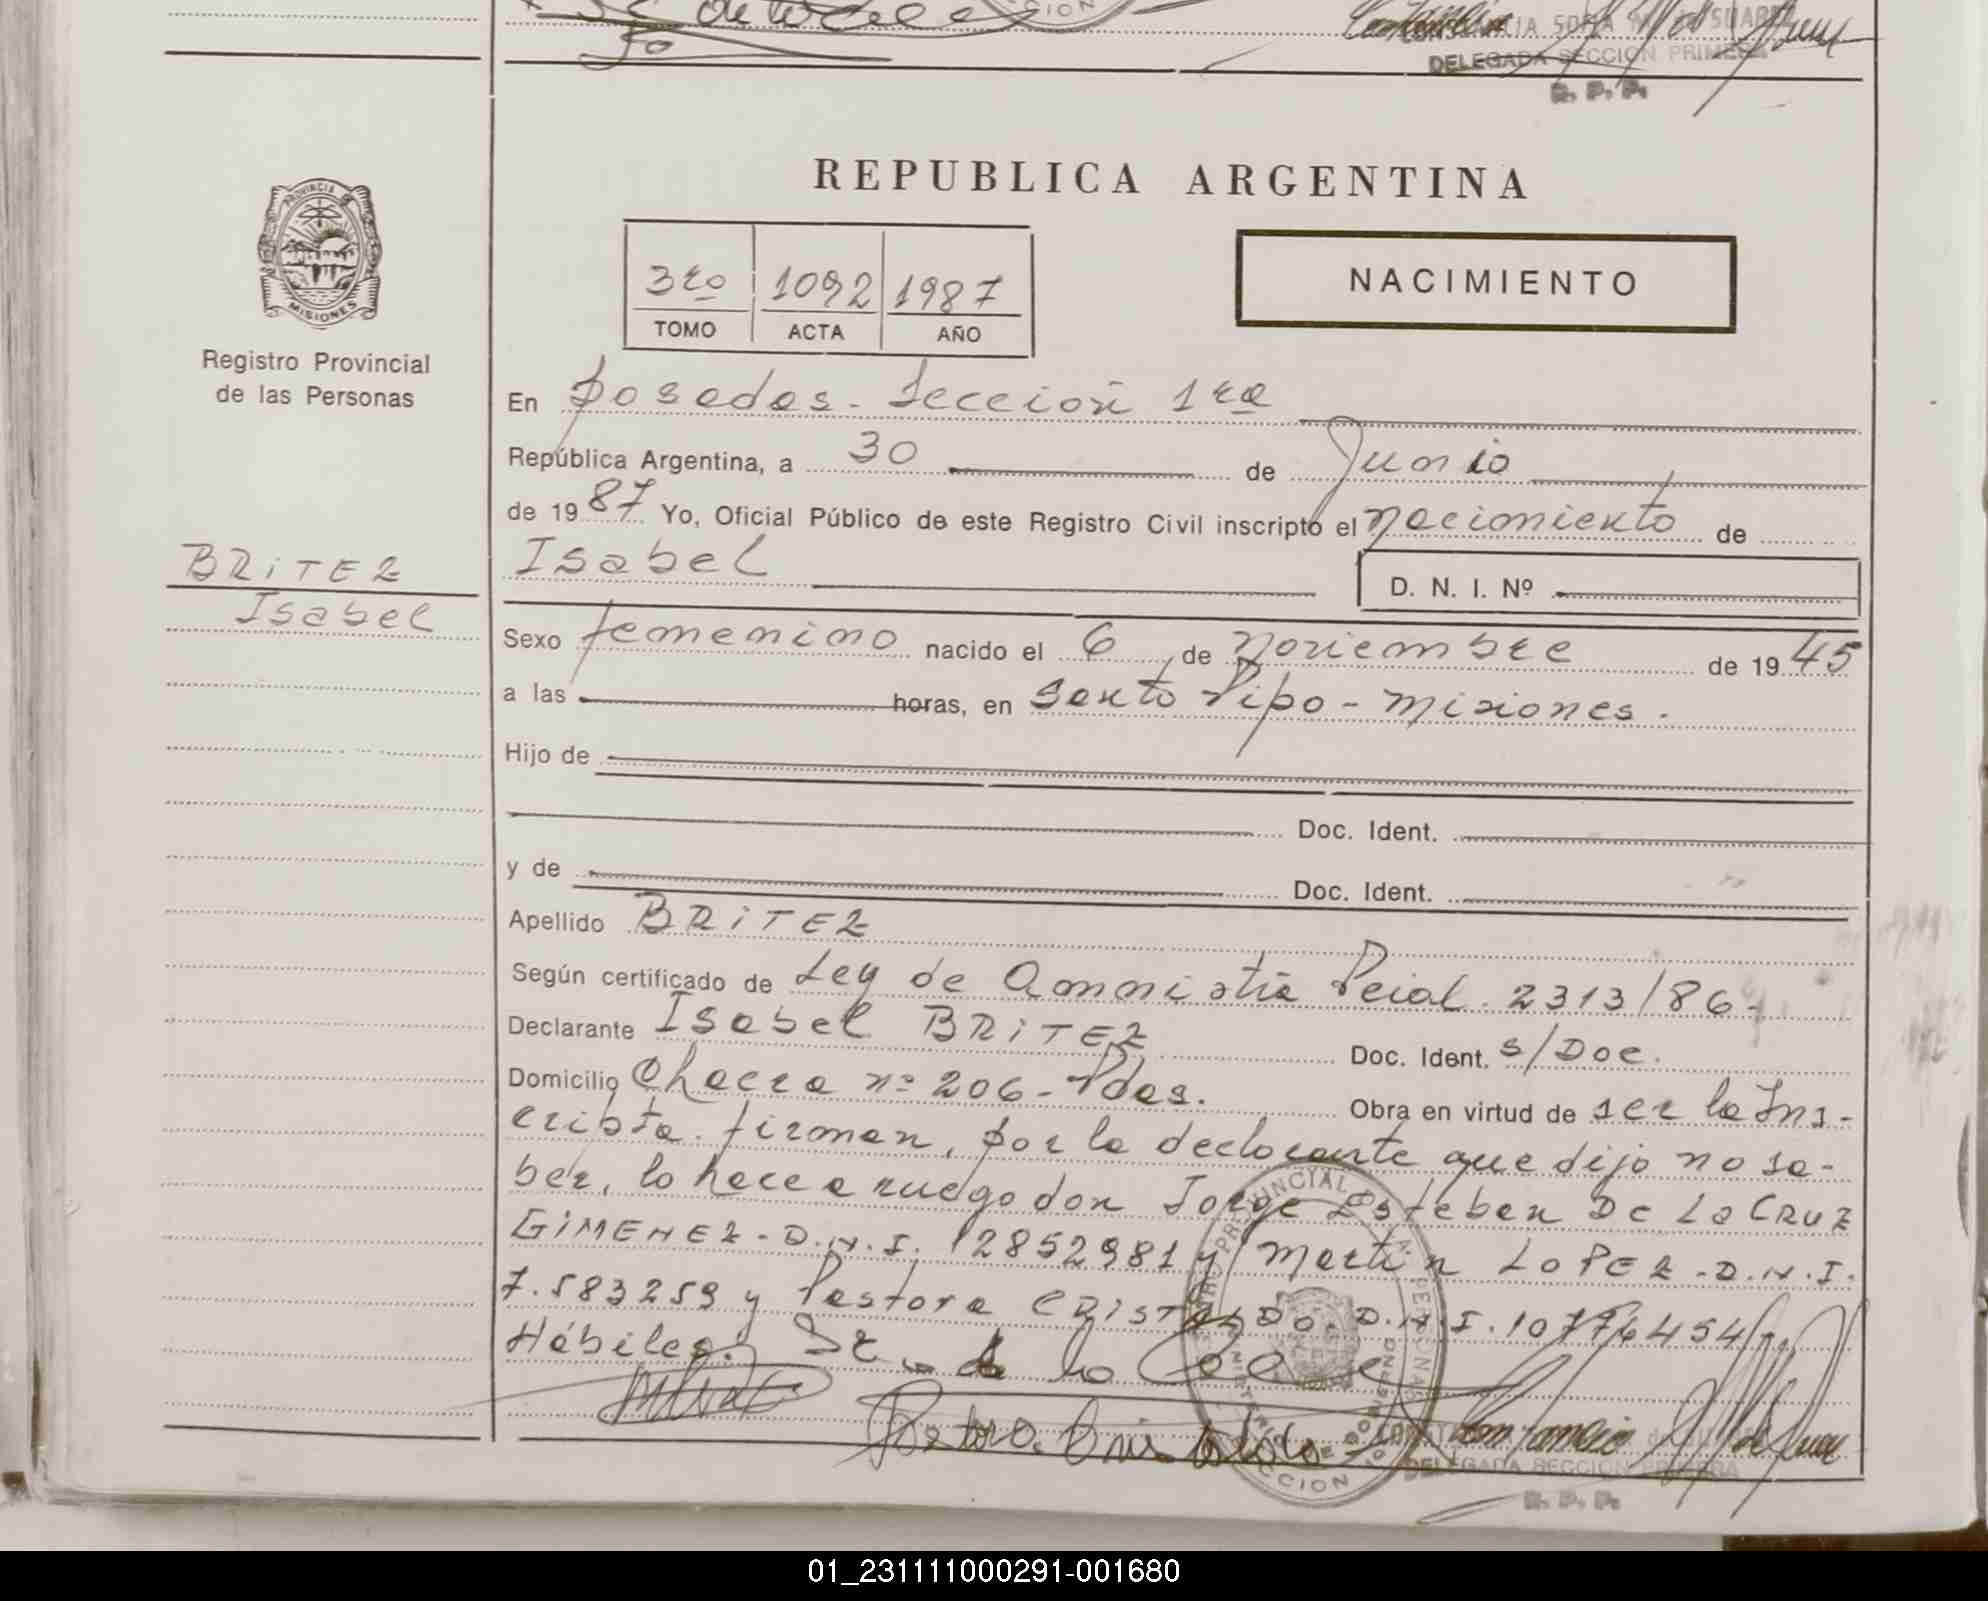 DELEGADA SECCION PRIMERA
R. P. P.
REPUBLICA ARGENTINA
PROVINCIA
MISIONES
3ro 1092 1987
TOMO ACTA AÑO
NACIMIENTO
Registro Provincial
de las Personas
En Posadas - Sección 1ra
República Argentina, a 30 de Junio
de 19 87 Yo, Oficial Público de este Registro Civil inscripto el nacimiento de
BRiTEZ
Isabel
Isabel
D. N. I. Nº
Sexo femenino nacido el 6 de noviembre de 19 45
a las horas, en Santo Pipo - Misiones.
Hijo de
Doc. Ident.
y de Doc. Ident.
Apellido BRiTEZ
Según certificado de Ley de Amnistía Pcial. 2313/86-
Declarante Isabel BRiTEZ Doc. Ident. s/Doc.
Domicilio Chacra nº 206 - Pdas. Obra en virtud de ser la Ins-
cripta. firman, por la declarante que dijo no sa-
ber, lo hace a ruego don Jorge Esteban De La CRUZ
GiMENEZ - D.N.I. 12852981 y Martin LOPEZ - D.N.I.
7.583259 y Pastora CRISTALDO. D.N.I. 10776454
Hábiles.
Pastora Cristaldo
DELEGADA SECCION PRIMERA
R. P. P.
01_231111000291-001680